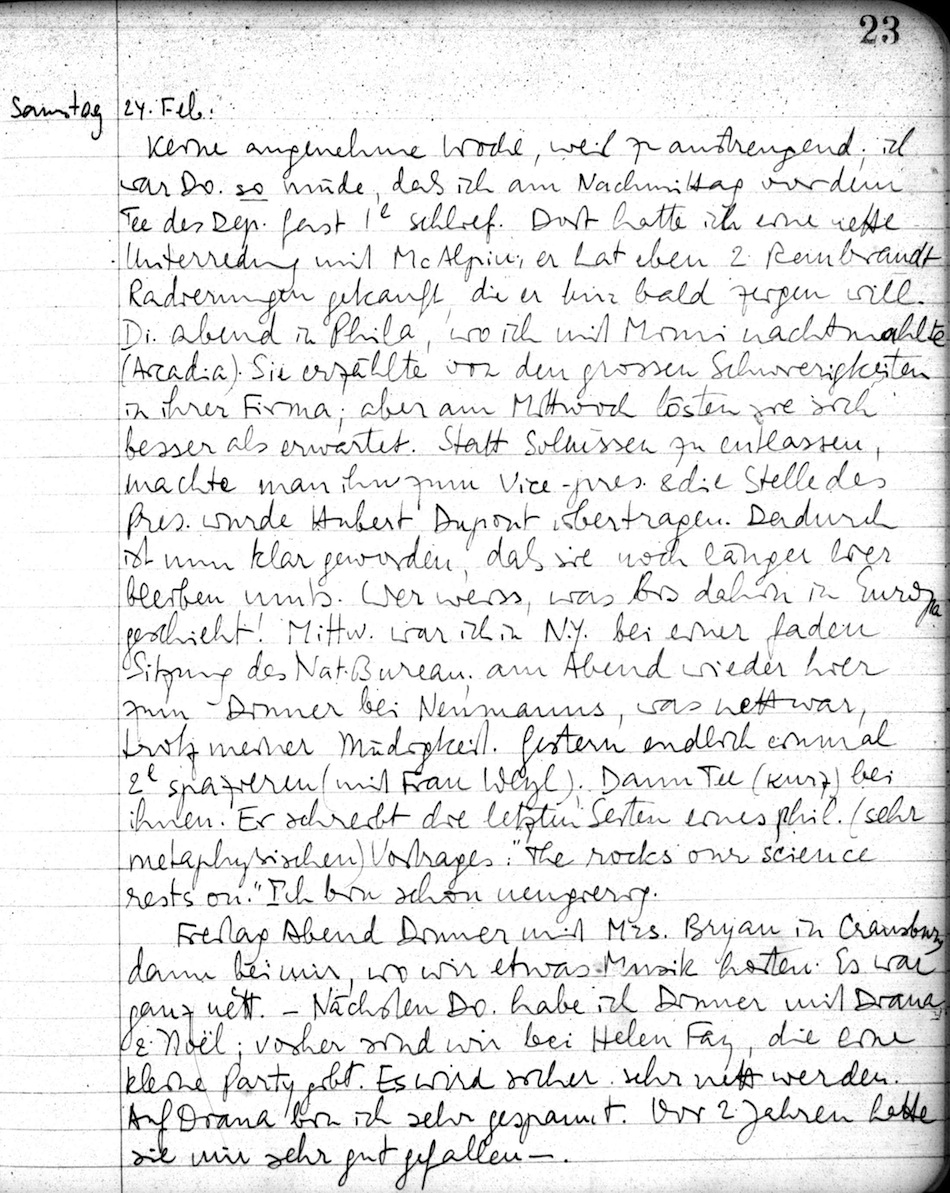 23
Samstag 24. Feb.:
Keine angenehme Woche, weil zu anstrengend; ich
war Do. so müde, dass ich am Nachmittag vor dem
Tee des Dep. fast 1h schlief. Dort hatte ich eine nette
Unterredung mit McAlpin; er hat eben 2 Rembrandt
Radierungen gekauft, die er bald zeigen will.
Di. abend in Phila, wo ich mit Mimi nachtmahlte
(Arcadia). Sie erzählte von den grossen Schwierigkeiten
in ihrer Firma; aber am Mittwoch lösten sie sich
besser als erwartet. Statt zu entlassen,
machte man ihn zum Vice-pres. & die Stelle des
Pres. wurde Hubert Dupont übertragen. Dadurch
ist nun klar geworden, dass sie noch länger hier
bleiben muss. Wer weiss, was bis dahin in Europa
geschieht! Mittw. war ich in N.Y. bei einer faden
Sitzung des Nat. Bureau; am Abend wieder hier
zum Dinner bei Neumanns, was nett war,
trotz meiner Müdigkeit. Gestern endlich einmal
2h spazieren (mit Frau Weyl). Dann Tee (kurz) bei
ihnen. Er schreibt die letzten Seiten eines phil. (sehr
metaphysischen) Vortrages: "The rocks our science
rests on." Ich bin schon neugierig.
Freitag Abend Dinner mit Mrs. Bryan in Cranbury,
dann bei mir, wo wir etwas Musik hörten. Es war
ganz nett. – Nächsten Do. habe ich Dinner mit Diana
& Noël; vorher sind wir bei Helen Fay, die eine
kleine Party gibt. Es wird sicher sehr nett werden.
Auf Diana bin ich sehr gespannt. Vor 2 Jahren hatte
sie mir sehr gut gefallen –.